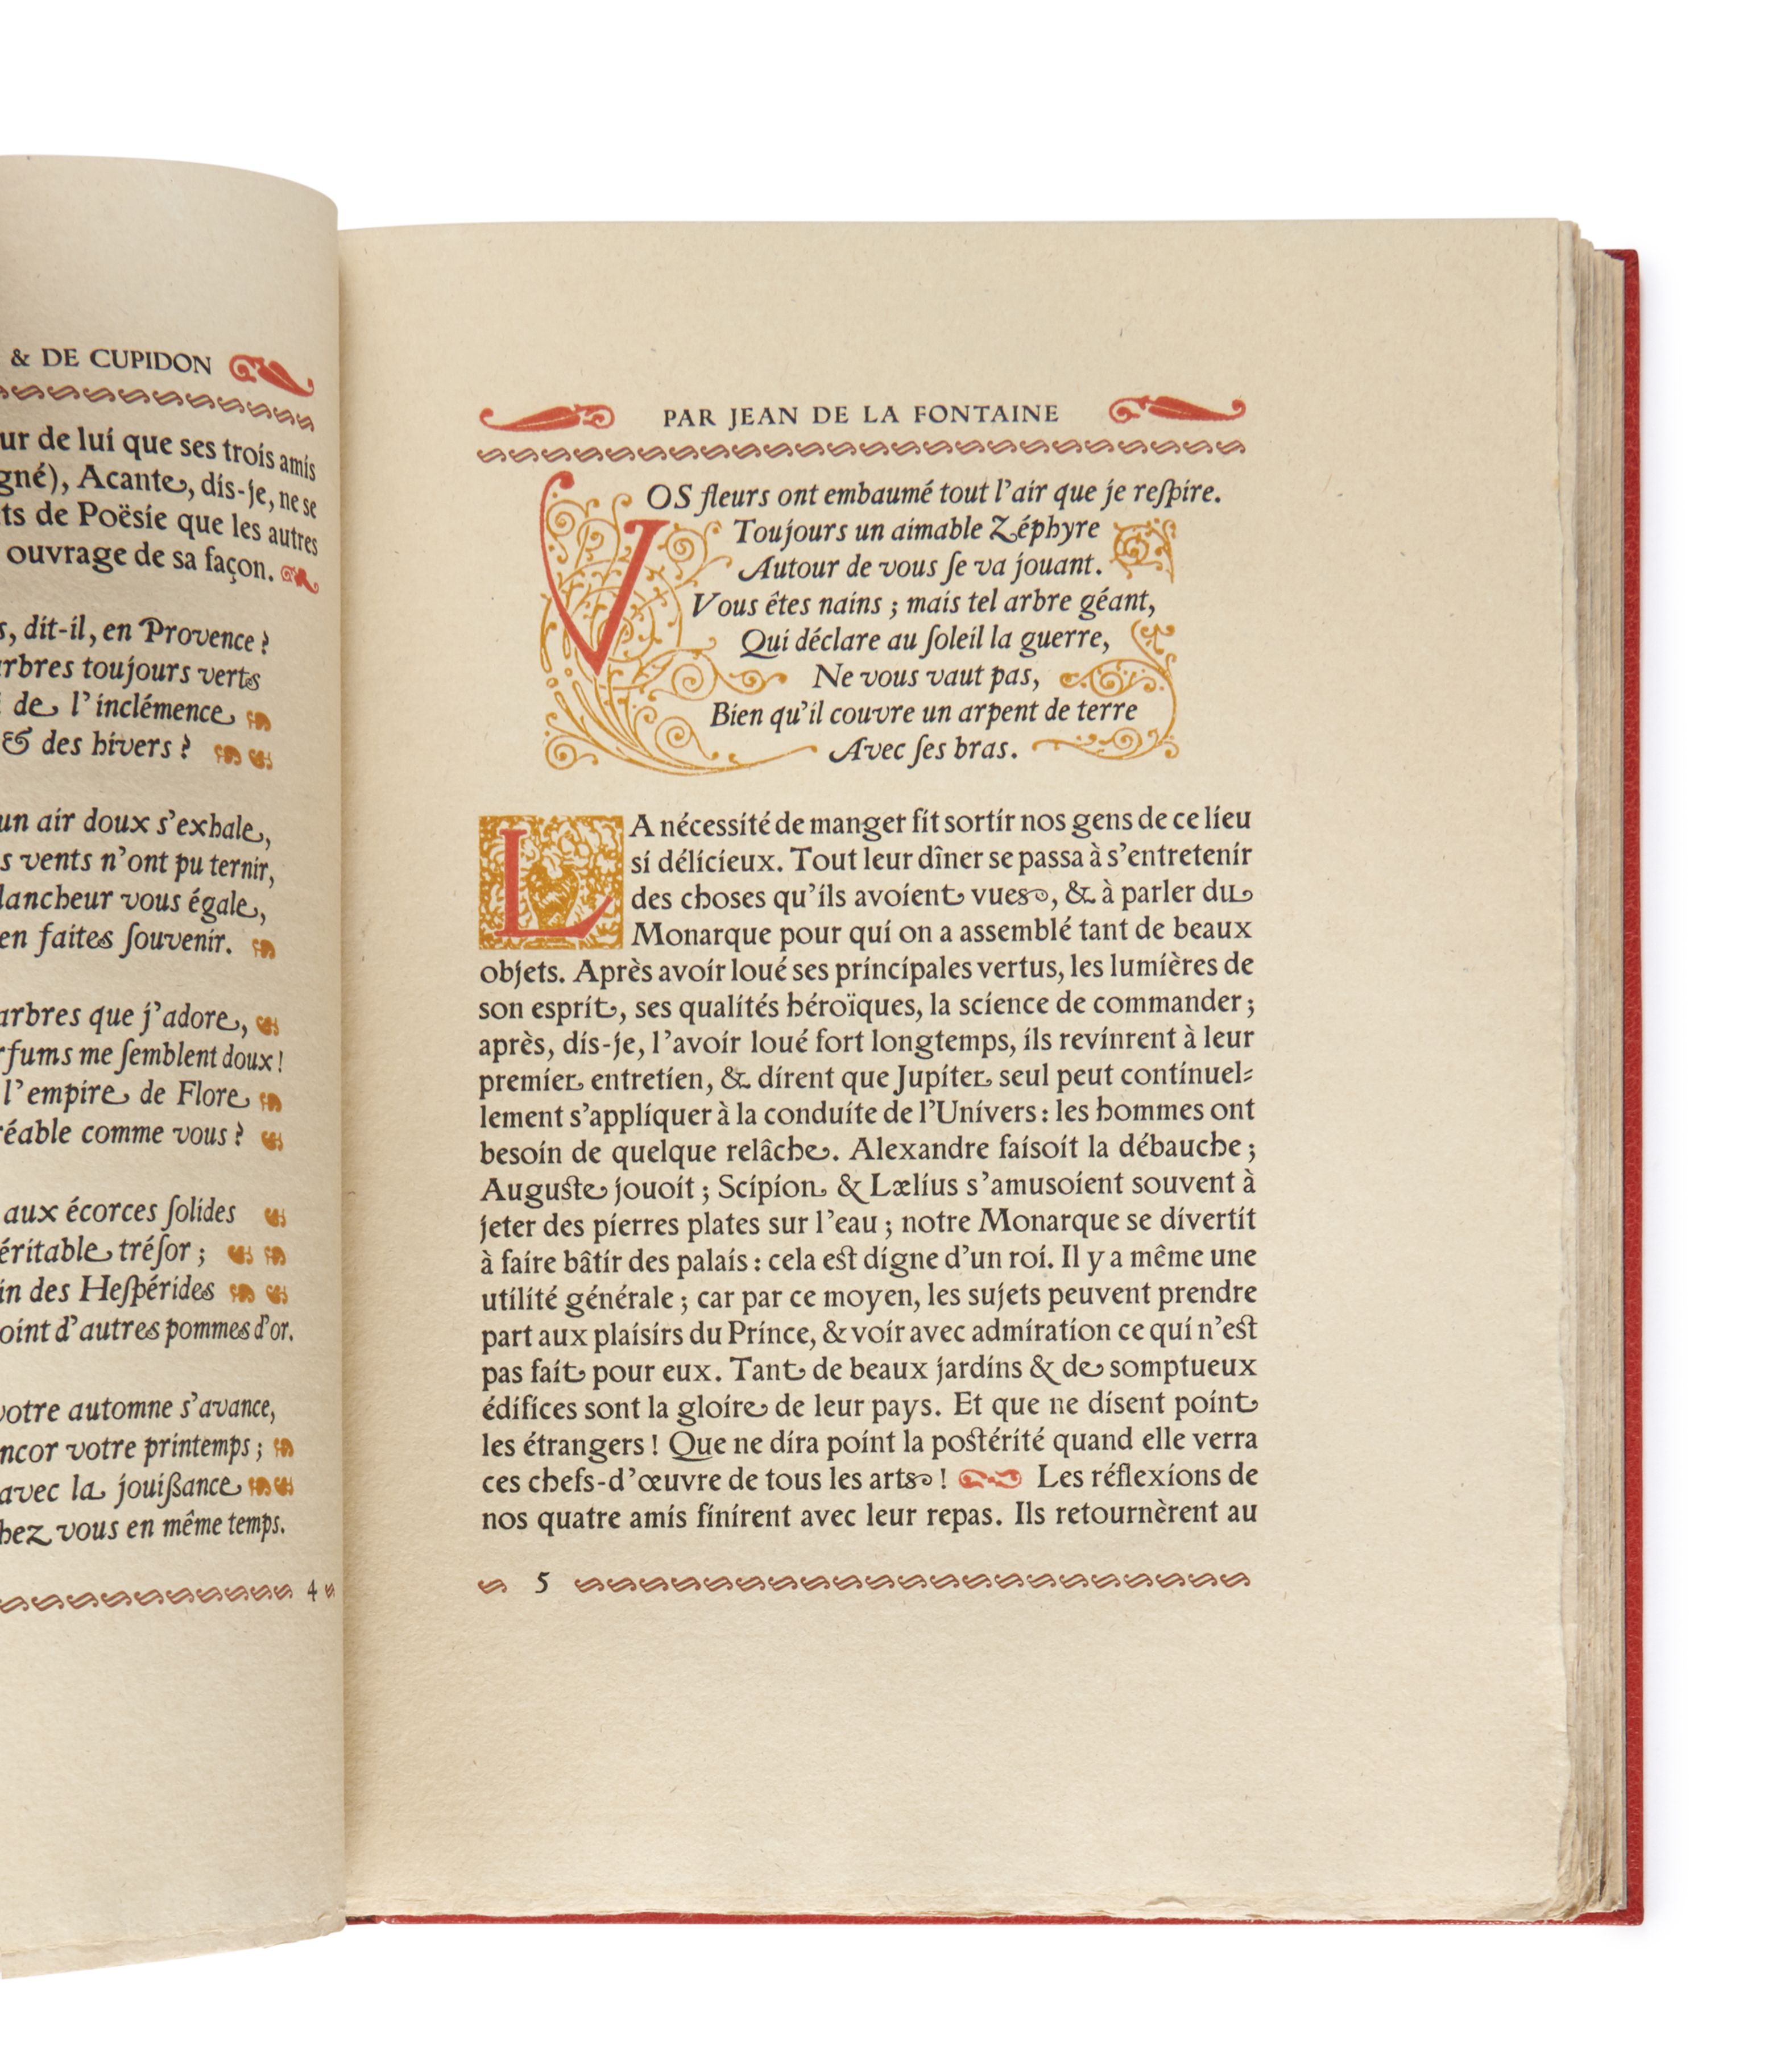 & DE CUPIDON
ur de lui que ses trois amis
gné), Acante, dis-je, ne se
ts de Poësie que les autres
ouvrage de sa façon.
s, dit-il, en Provence ?
arbres toujours verts
de l'inclémence
& des hivers ?
un air doux s'exhale,
s vents n'ont pu ternir,
lancheur vous égale,
en faites ſouvenir.
arbres que j'adore,
rfums me ſemblent doux !
l'empire de Flore
réable comme vous ?
aux écorces ſolides
éritable tréſor ;
in des Heſpérides
oint d'autres pommes d'or.
votre automne s'avance,
ncor votre printemps ;
avec la jouißance
hez vous en même temps.
4
PAR JEAN DE LA FONTAINE
VOS fleurs ont embaumé tout l'air que je reſpire.
Toujours un aimable Zéphyre
Autour de vous ſe va jouant.
Vous êtes nains ; mais tel arbre géant,
Qui déclare au ſoleil la guerre,
Ne vous vaut pas,
Bien qu'il couvre un arpent de terre
Avec ſes bras.
LA nécessité de manger fit sortir nos gens de ce lieu
si délicieux. Tout leur dîner se passa à s'entretenir
des choses qu'ils avoient vues, & à parler du
Monarque pour qui on a assemblé tant de beaux
objets. Après avoir loué ses principales vertus, les lumières de
son esprit, ses qualités héroïques, la science de commander ;
après, dis-je, l'avoir loué fort longtemps, ils revinrent à leur
premier entretien, & dirent que Jupiter seul peut continuel-
lement s'appliquer à la conduite de l'Univers : les hommes ont
besoin de quelque relâche. Alexandre faisoit la débauche ;
Auguste jouoit ; Scipion & Lælius s'amusoient souvent à
jeter des pierres plates sur l'eau ; notre Monarque se divertit
à faire bâtir des palais : cela est digne d'un roi. Il y a même une
utilité générale ; car par ce moyen, les sujets peuvent prendre
part aux plaisirs du Prince, & voir avec admiration ce qui n'est
pas fait pour eux. Tant de beaux jardins & de somptueux
édifices sont la gloire de leur pays. Et que ne disent point
les étrangers ! Que ne dira point la postérité quand elle verra
ces chefs-d'œuvre de tous les arts ! Les réflexions de
nos quatre amis finirent avec leur repas. Ils retournèrent au
5